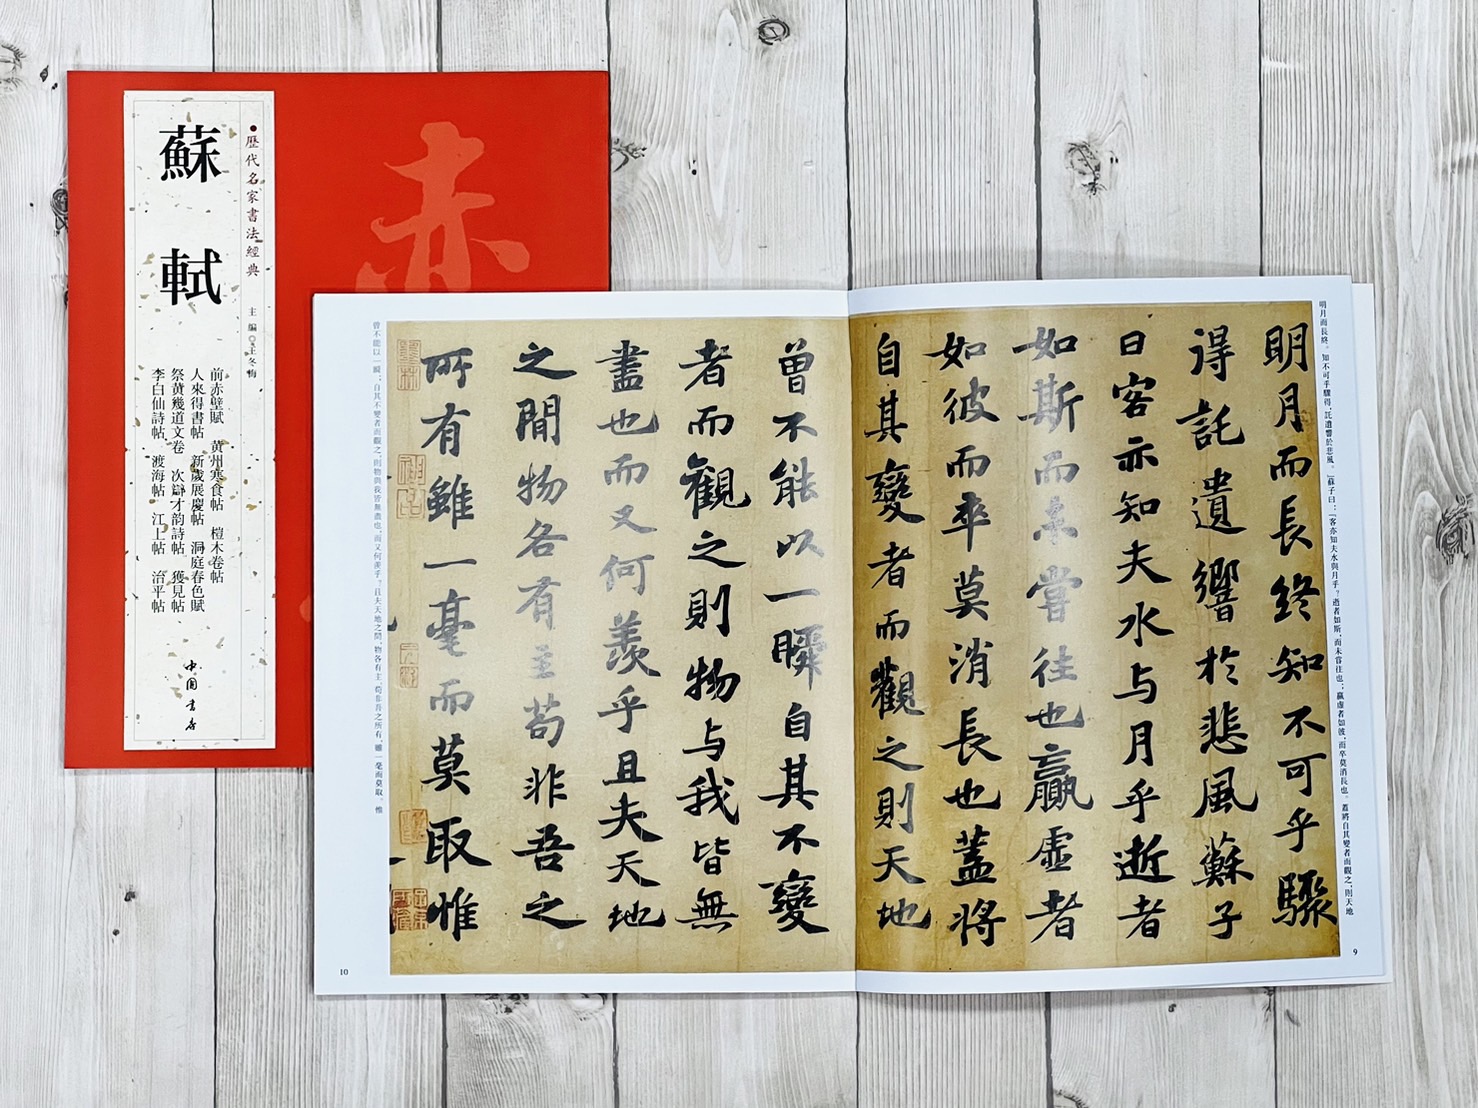 歷代名家書法經典
主編◎王冬梅
蘇軾
前赤壁賦 黃州寒食帖 榿木卷帖
人來得書帖 新歲展慶帖 洞庭春色賦
祭黃幾道文卷 次辯才韵詩帖 獲見帖
李白仙詩帖 渡海帖 江上帖 治平帖
中國書店
赤
明月而長終。知不可乎驟得，託遺響於悲風。﹂蘇子曰：﹁客亦知夫水與月乎？逝者如斯，而未嘗往也；贏虛者如彼，而卒莫消長也。蓋將自其變者而觀之，則天地
明月而長終知不可乎驟
得託遺響於悲風蘇子
曰客亦知夫水与月乎逝者
如斯而未嘗往也贏虛者
如彼而卒莫消長也蓋將
自其變者而觀之則天地
9
曾不能以一瞬自其不變
者而觀之則物与我皆無
盡也而又何羨乎且夫天地
之間物各有主苟非吾之
所有雖一毫而莫取惟
曾不能以一瞬；自其不變者而觀之，則物與我皆無盡也，而又何羨乎？且夫天地之間，物各有主，苟非吾之所有，雖一毫而莫取。惟
10